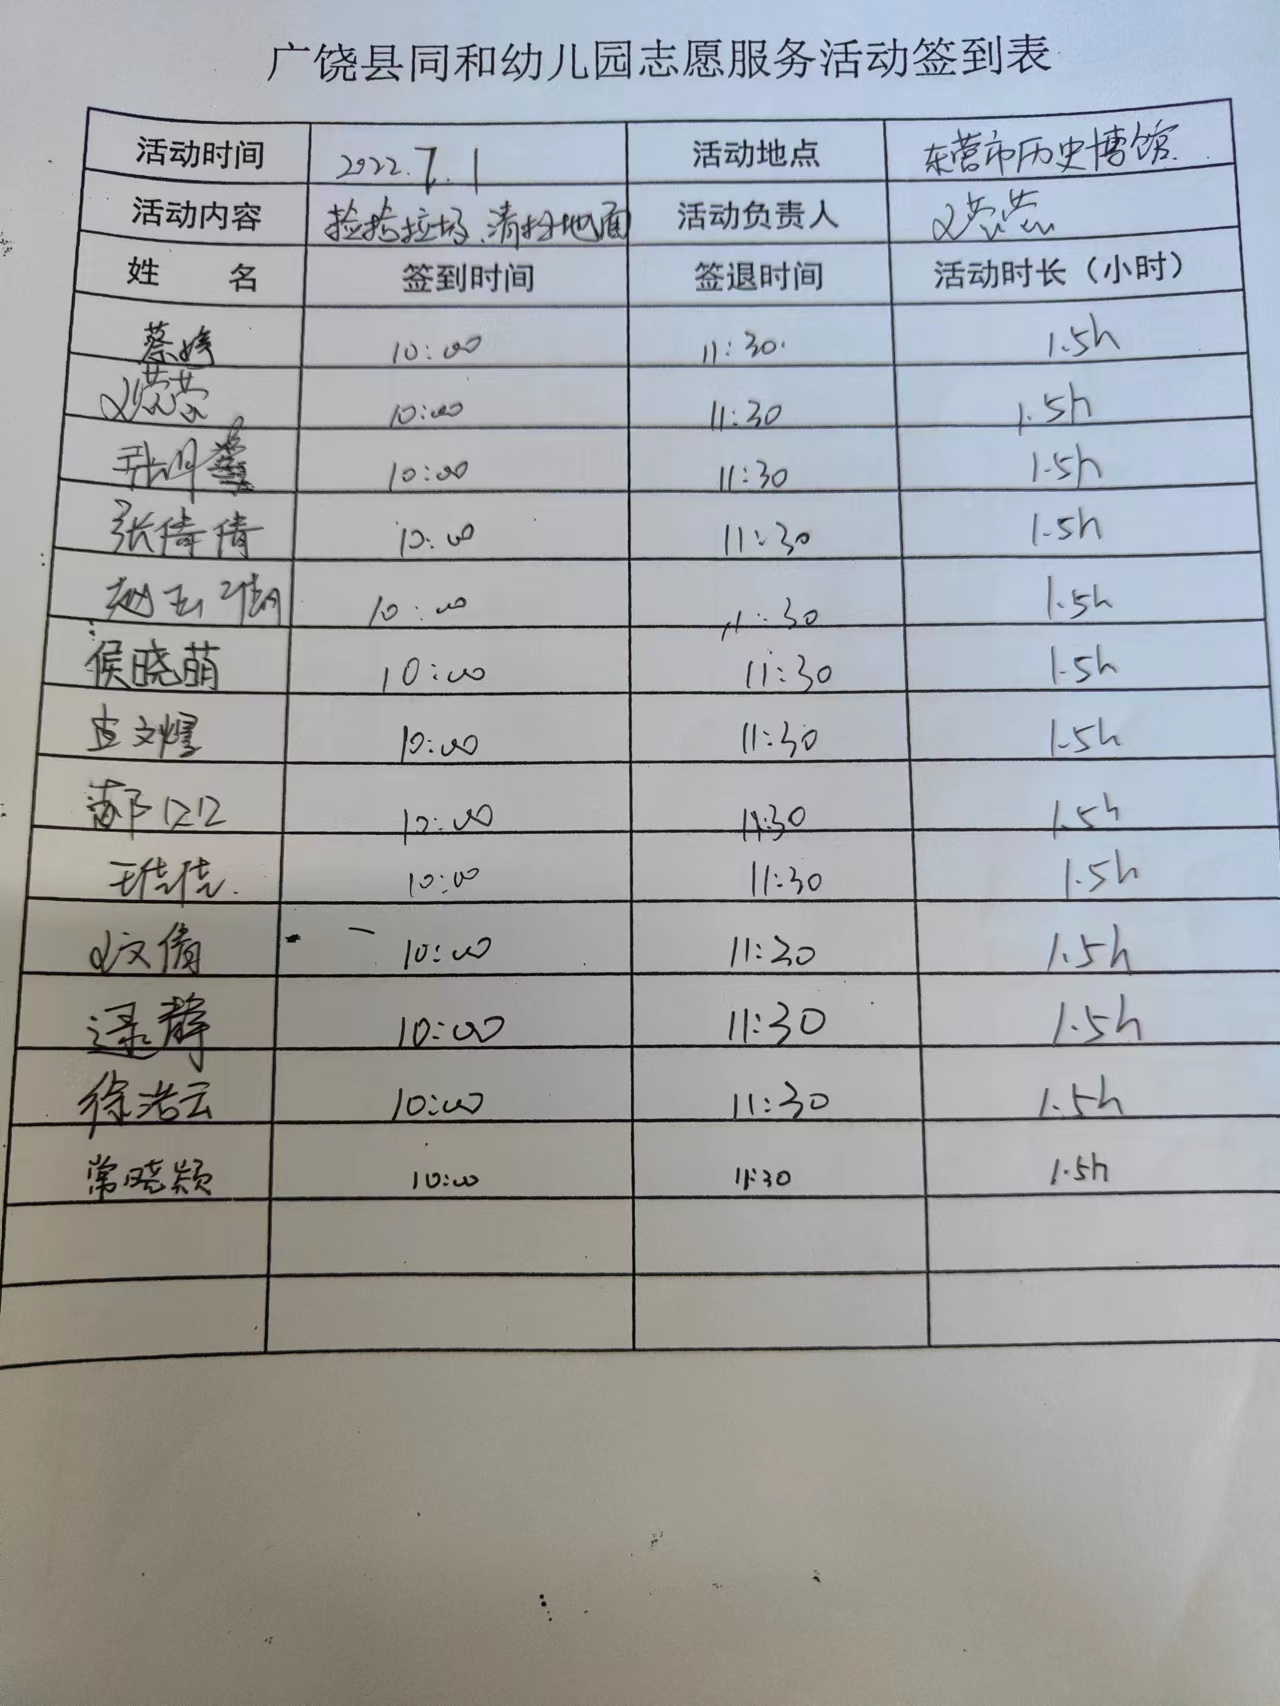 广饶县同和幼儿园志愿服务活动签到表
活动时间 2022.7.1 活动地点 东营市历史博馆
活动内容 捡拾垃圾、清扫地面 活动负责人
姓 名 签到时间 签退时间 活动时长（小时）
蔡婷 10:00 11:30. 1.5h
10:00 11:30 1.5h
10:00 11:30 1.5h
张倩倩 10:00 11:30 1.5h
赵玉 10:00 11:30 1.5h
侯晓萌 10:00 11:30 1.5h
文耀 10:00 11:30 1.5h
10:00 11:30 1.5h
王佳佳. 10:00 11:30 1.5h
文倩 10:00 11:30 1.5h
逯静 10:00 11:30 1.5h
徐浩云 10:00 11:30 1.5h
常晓颖 10:00 11:30 1.5h